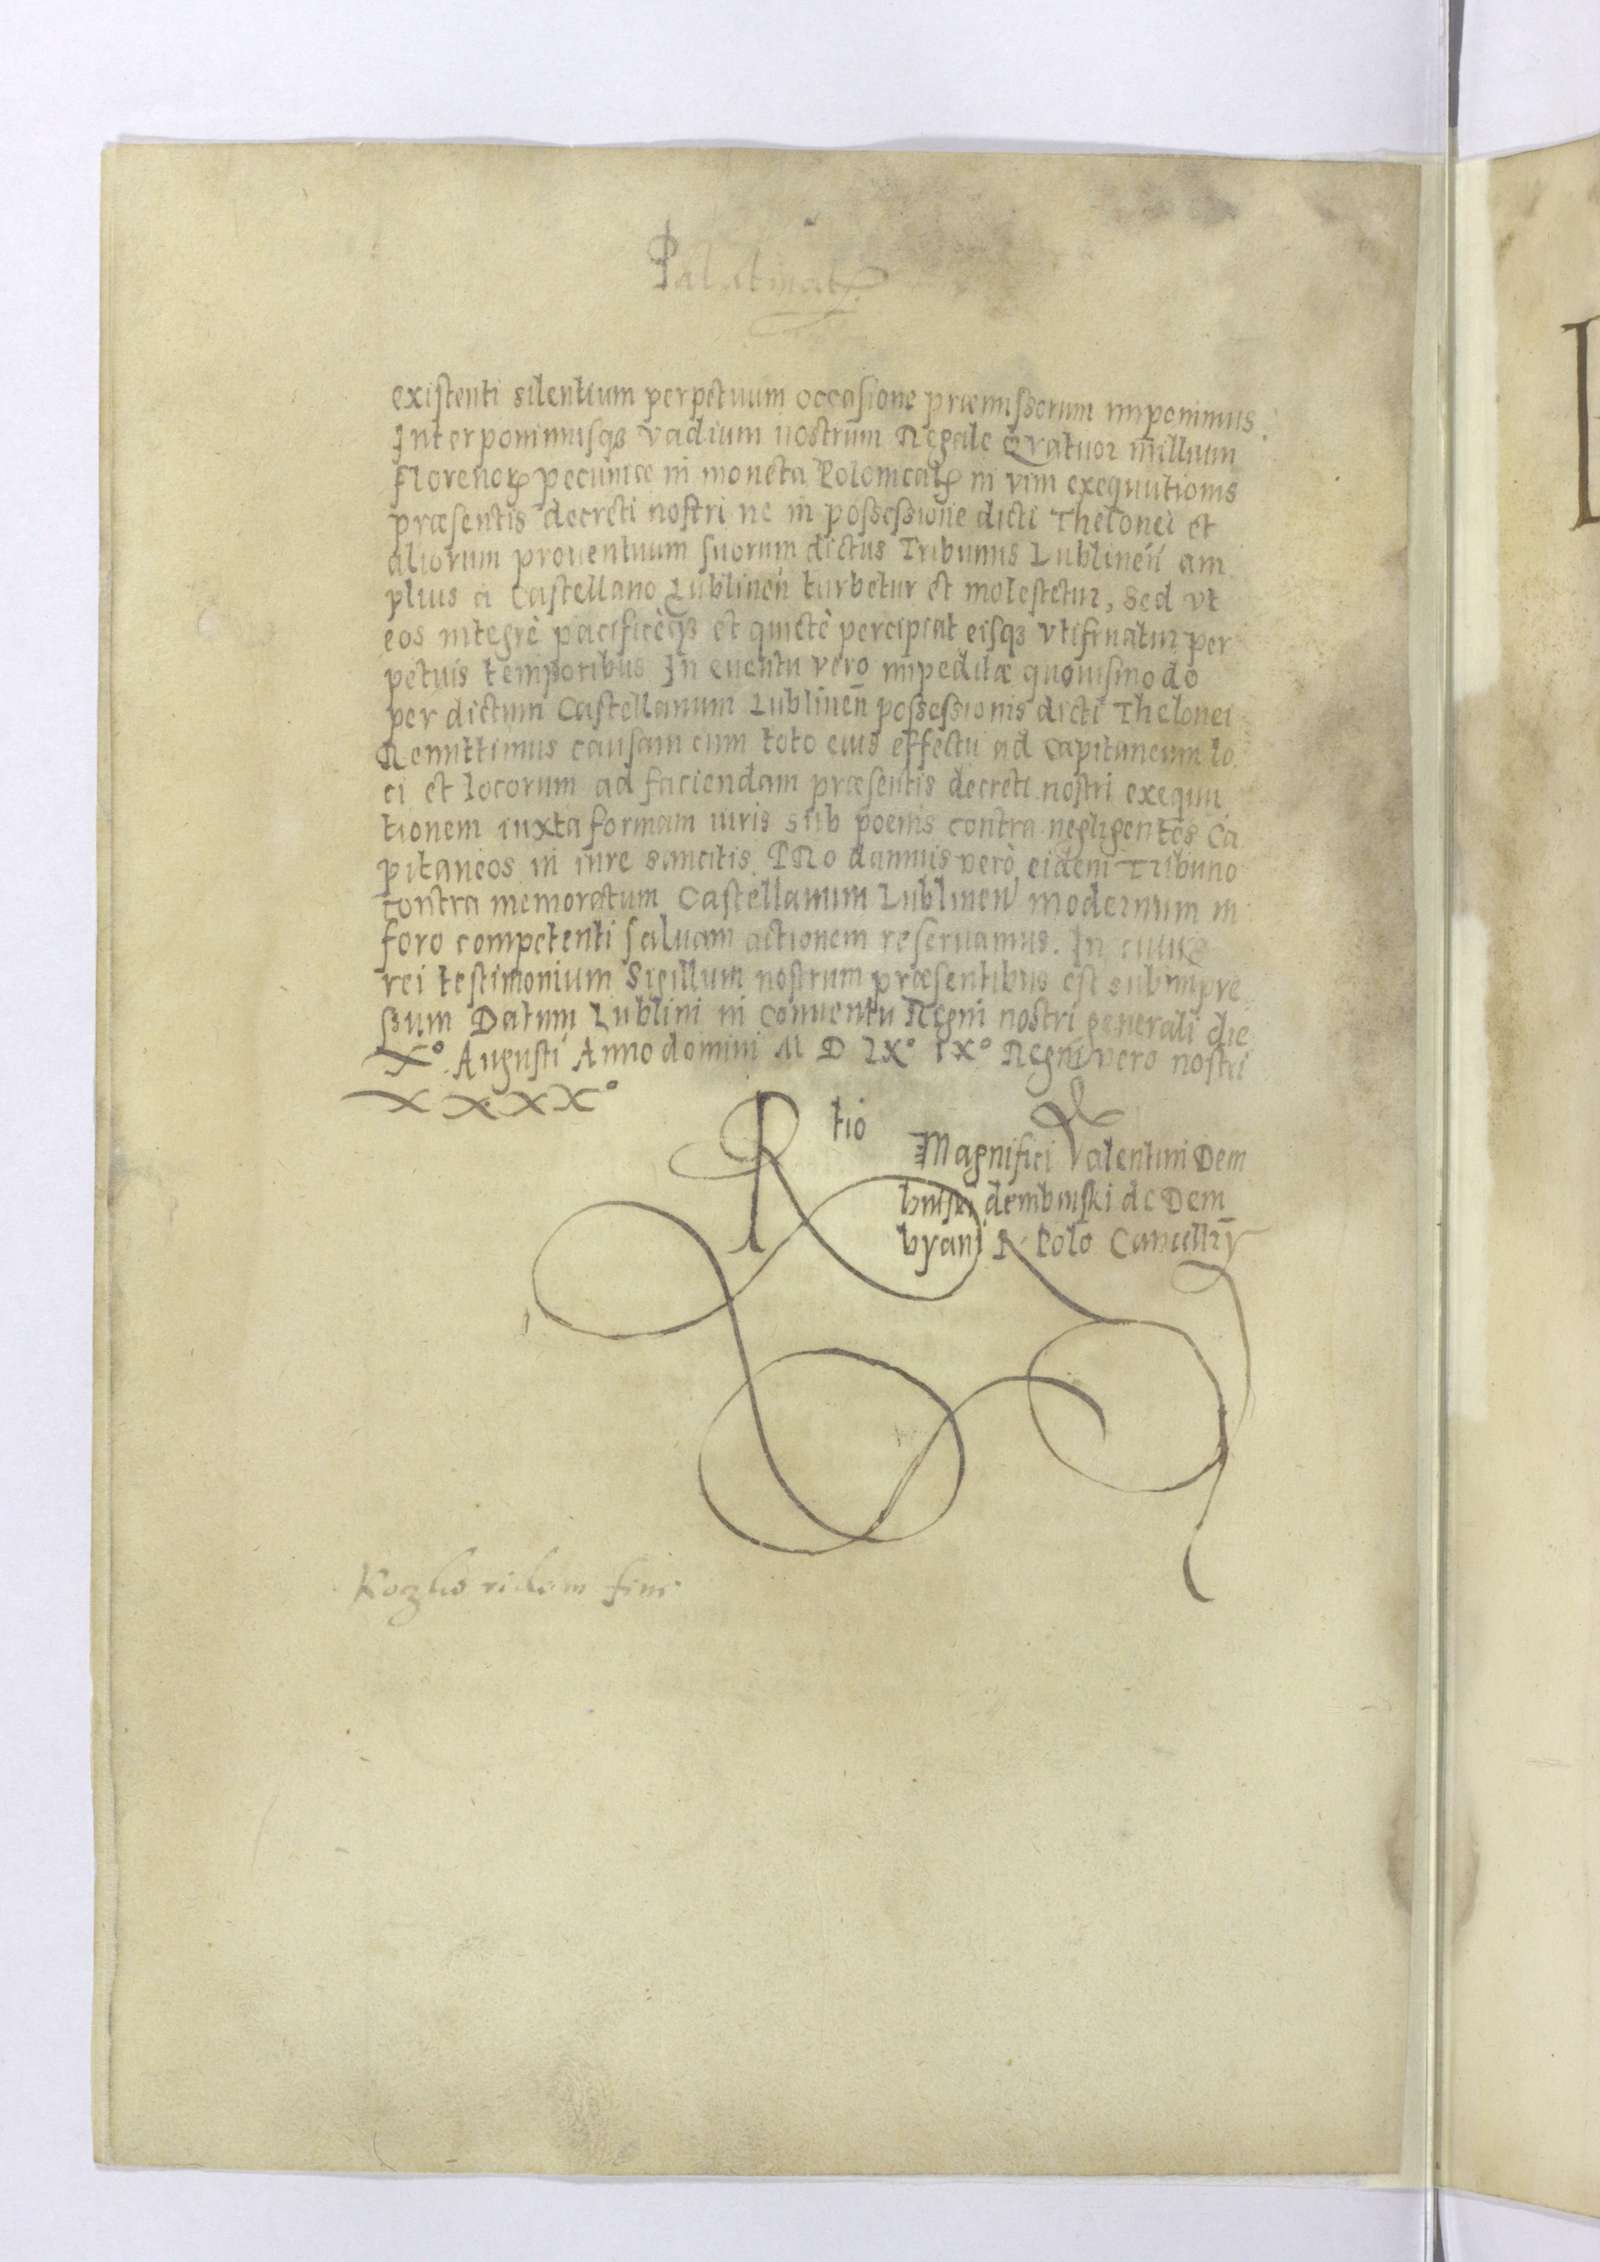 Palatinatꝝ
existenti silentium perpetuum occasione præmissorum imponimus.
Interponimusqꝫ vadium nostrum Regale Qvatuor millium
florenoꝝ pecuniæ in moneta Polonicaꝉ in vim exequutionis
præsentis decreti nostri ne in possessione dicti Thelonei et
aliorum prouentuum suorum dictus Tribunus Lublineñ am
plius a Castellano Lublineñ turbetur et molestetur, Sed vt
eos integrè pacificèqꝫ et quietè percipiat eisqꝫ vtifruatur per
petuis temporibus In euentu vero impeditæ quouismodo
per dictum Castellanum Lublineñ possessionis dicti Thelonei
Remittimus causam cum toto eius effectu ad Capitaneum lo
ci et locorum ad faciendam præsentis decreti nostri exequu
tionem iuxta formam iuris sub poenis contra negligentes Ca
pitaneos in iure sancitis. PRo damnis verò eidem Tribuno
contra memoratum Castellanum Lublineñ modernum in
foro competenti saluam actionem reseruamus. In cuius
rei testimonium Sigillum nostrum præsentibus est subimpre
ssum Datum Lublini in Conuentu Regni nostri generali die
X° Augusti Anno domini M D LX° IX° Regni vero nostri
XXXX°
Rtio
Magnifici Valentini Dem
binski dembinski de Dem
byani R Polo Cancellrÿ